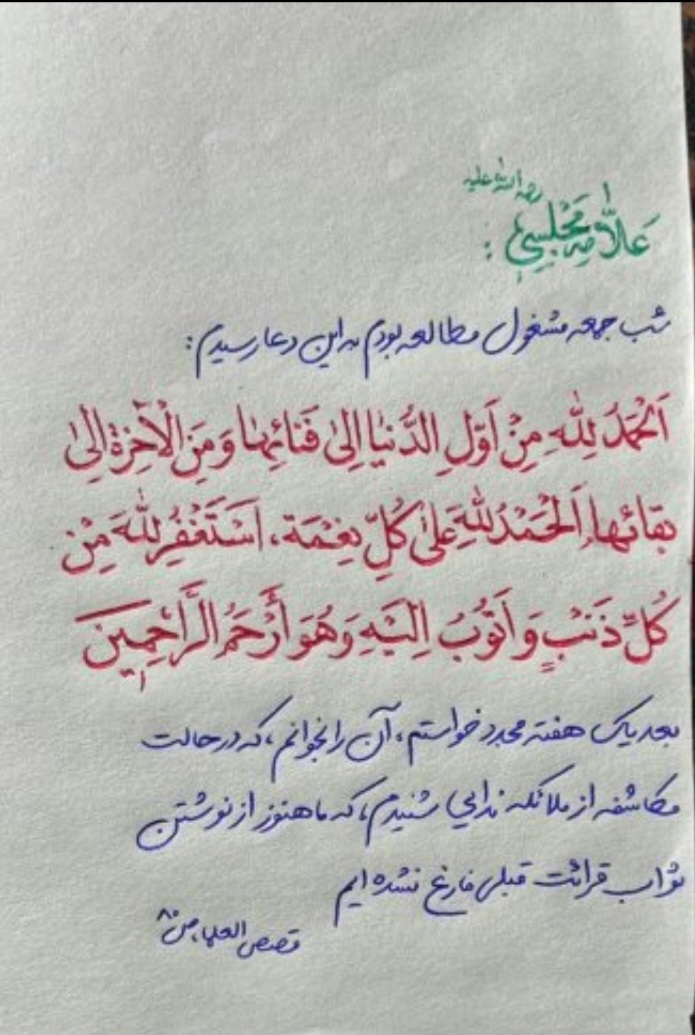 رحمه الله علیه
عَلاّمه مَجلِسی :
شب جمعه مشغول مطالعه بودم به این دعا رسیدم:
اَلْحَمْدُ لِلّٰهِ مِنْ اَوَّلِ الدُّنیٰا اِلیٰ فَنٰائِهٰا وَ مِنَ الْآخِرَةِ اِلیٰ
بَقائها اَلْحَمْدُ لِلّٰهِ عَلیٰ کُلِّ نِعْمَة، اَسْتَغْفِرُ للهَ مِنْ
کُلِّ ذَنْبٍ وَ اَتُوْبُ اِلَیْهِ وَ هُوَ أَرْحَمُ الرَّاحِمِینَ
بعد یک هفته مجدد خواستم، آن را بخوانم، که در حالت
مکاشفه از ملائکه ندایی شنیدم، که ما هنوز از نوشتن
ثواب قرائت قبلی فارغ نشده ایم
قصص العلما، ص ۸۰